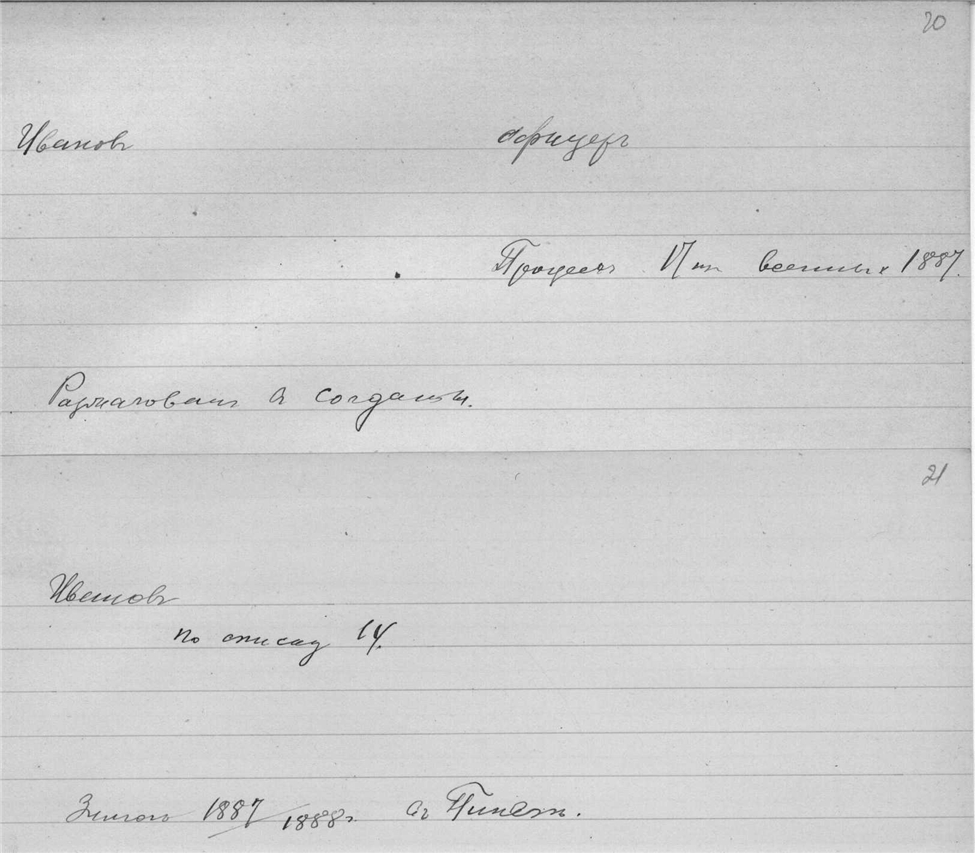 20
Ивановъ офицеръ
Процессъ 17ти военныхъ 1887.
Разжалованъ въ солдаты.
21
Ивановъ
по списку 14.
Зимою 1887/1888г. въ Пинегѣ.